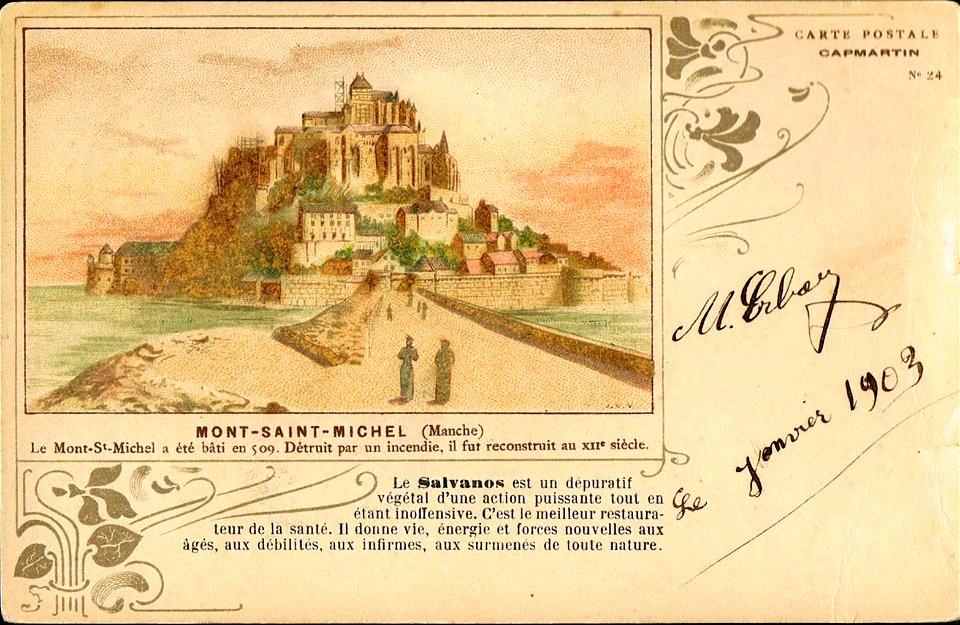 CARTE POSTALE
CAPMARTIN
No 24
MONT-SAINT-MICHEL (Manche)
Le Mont-St-Michel a été bâti en 509. Détruit par un incendie, il fut reconstruit au XIIe siècle.
Le Salvanos est un dépuratif
végétal d'une action puissante tout en
étant inoffensive. C'est le meilleur restaura-
teur de la santé. Il donne vie, énergie et forces nouvelles aux
âgés, aux débilités, aux infirmes, aux surmenés de toute nature.
M.
Le Janvier 1903